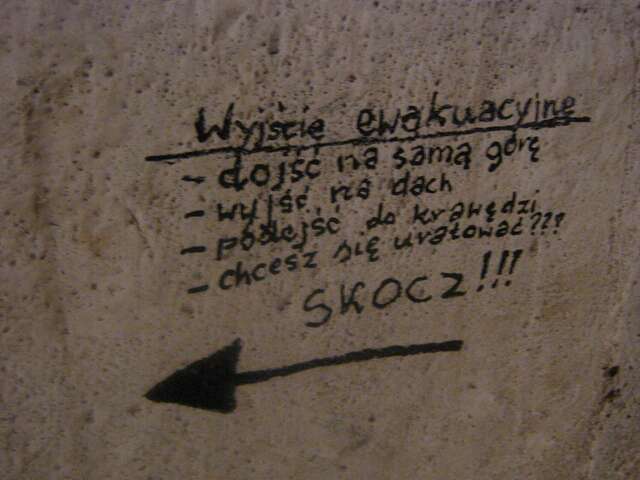 Wyjście ewakuacyjne
- dojść na samą górę
- wyjść na dach
- podejść do krawędzi
- chcesz się uratować???
SKOCZ!!!